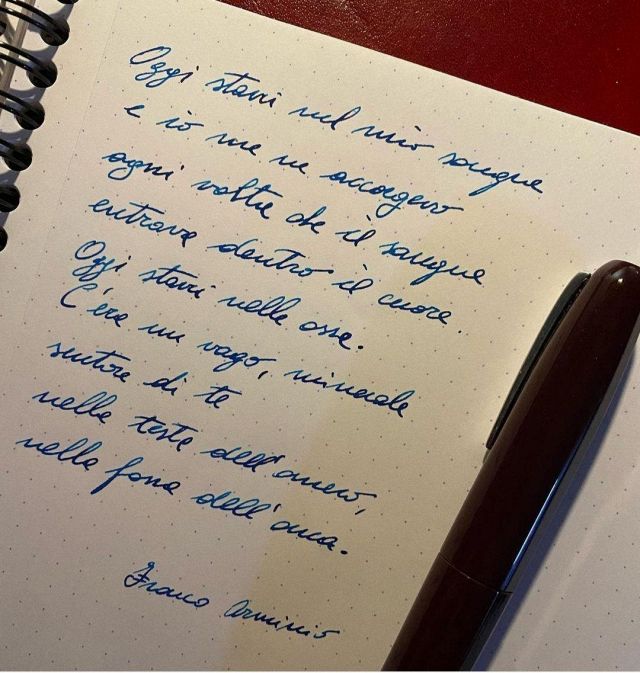 Oggi stavi nel mio sangue
e io me ne accorgevo
ogni volta che il sangue
entrava dentro il cuore.
Oggi stavi nelle ossa.
C'era un vago, minerale
sentore di te
nella testa dell'omero,
nella fossa dell'anca.
Franco Arminio